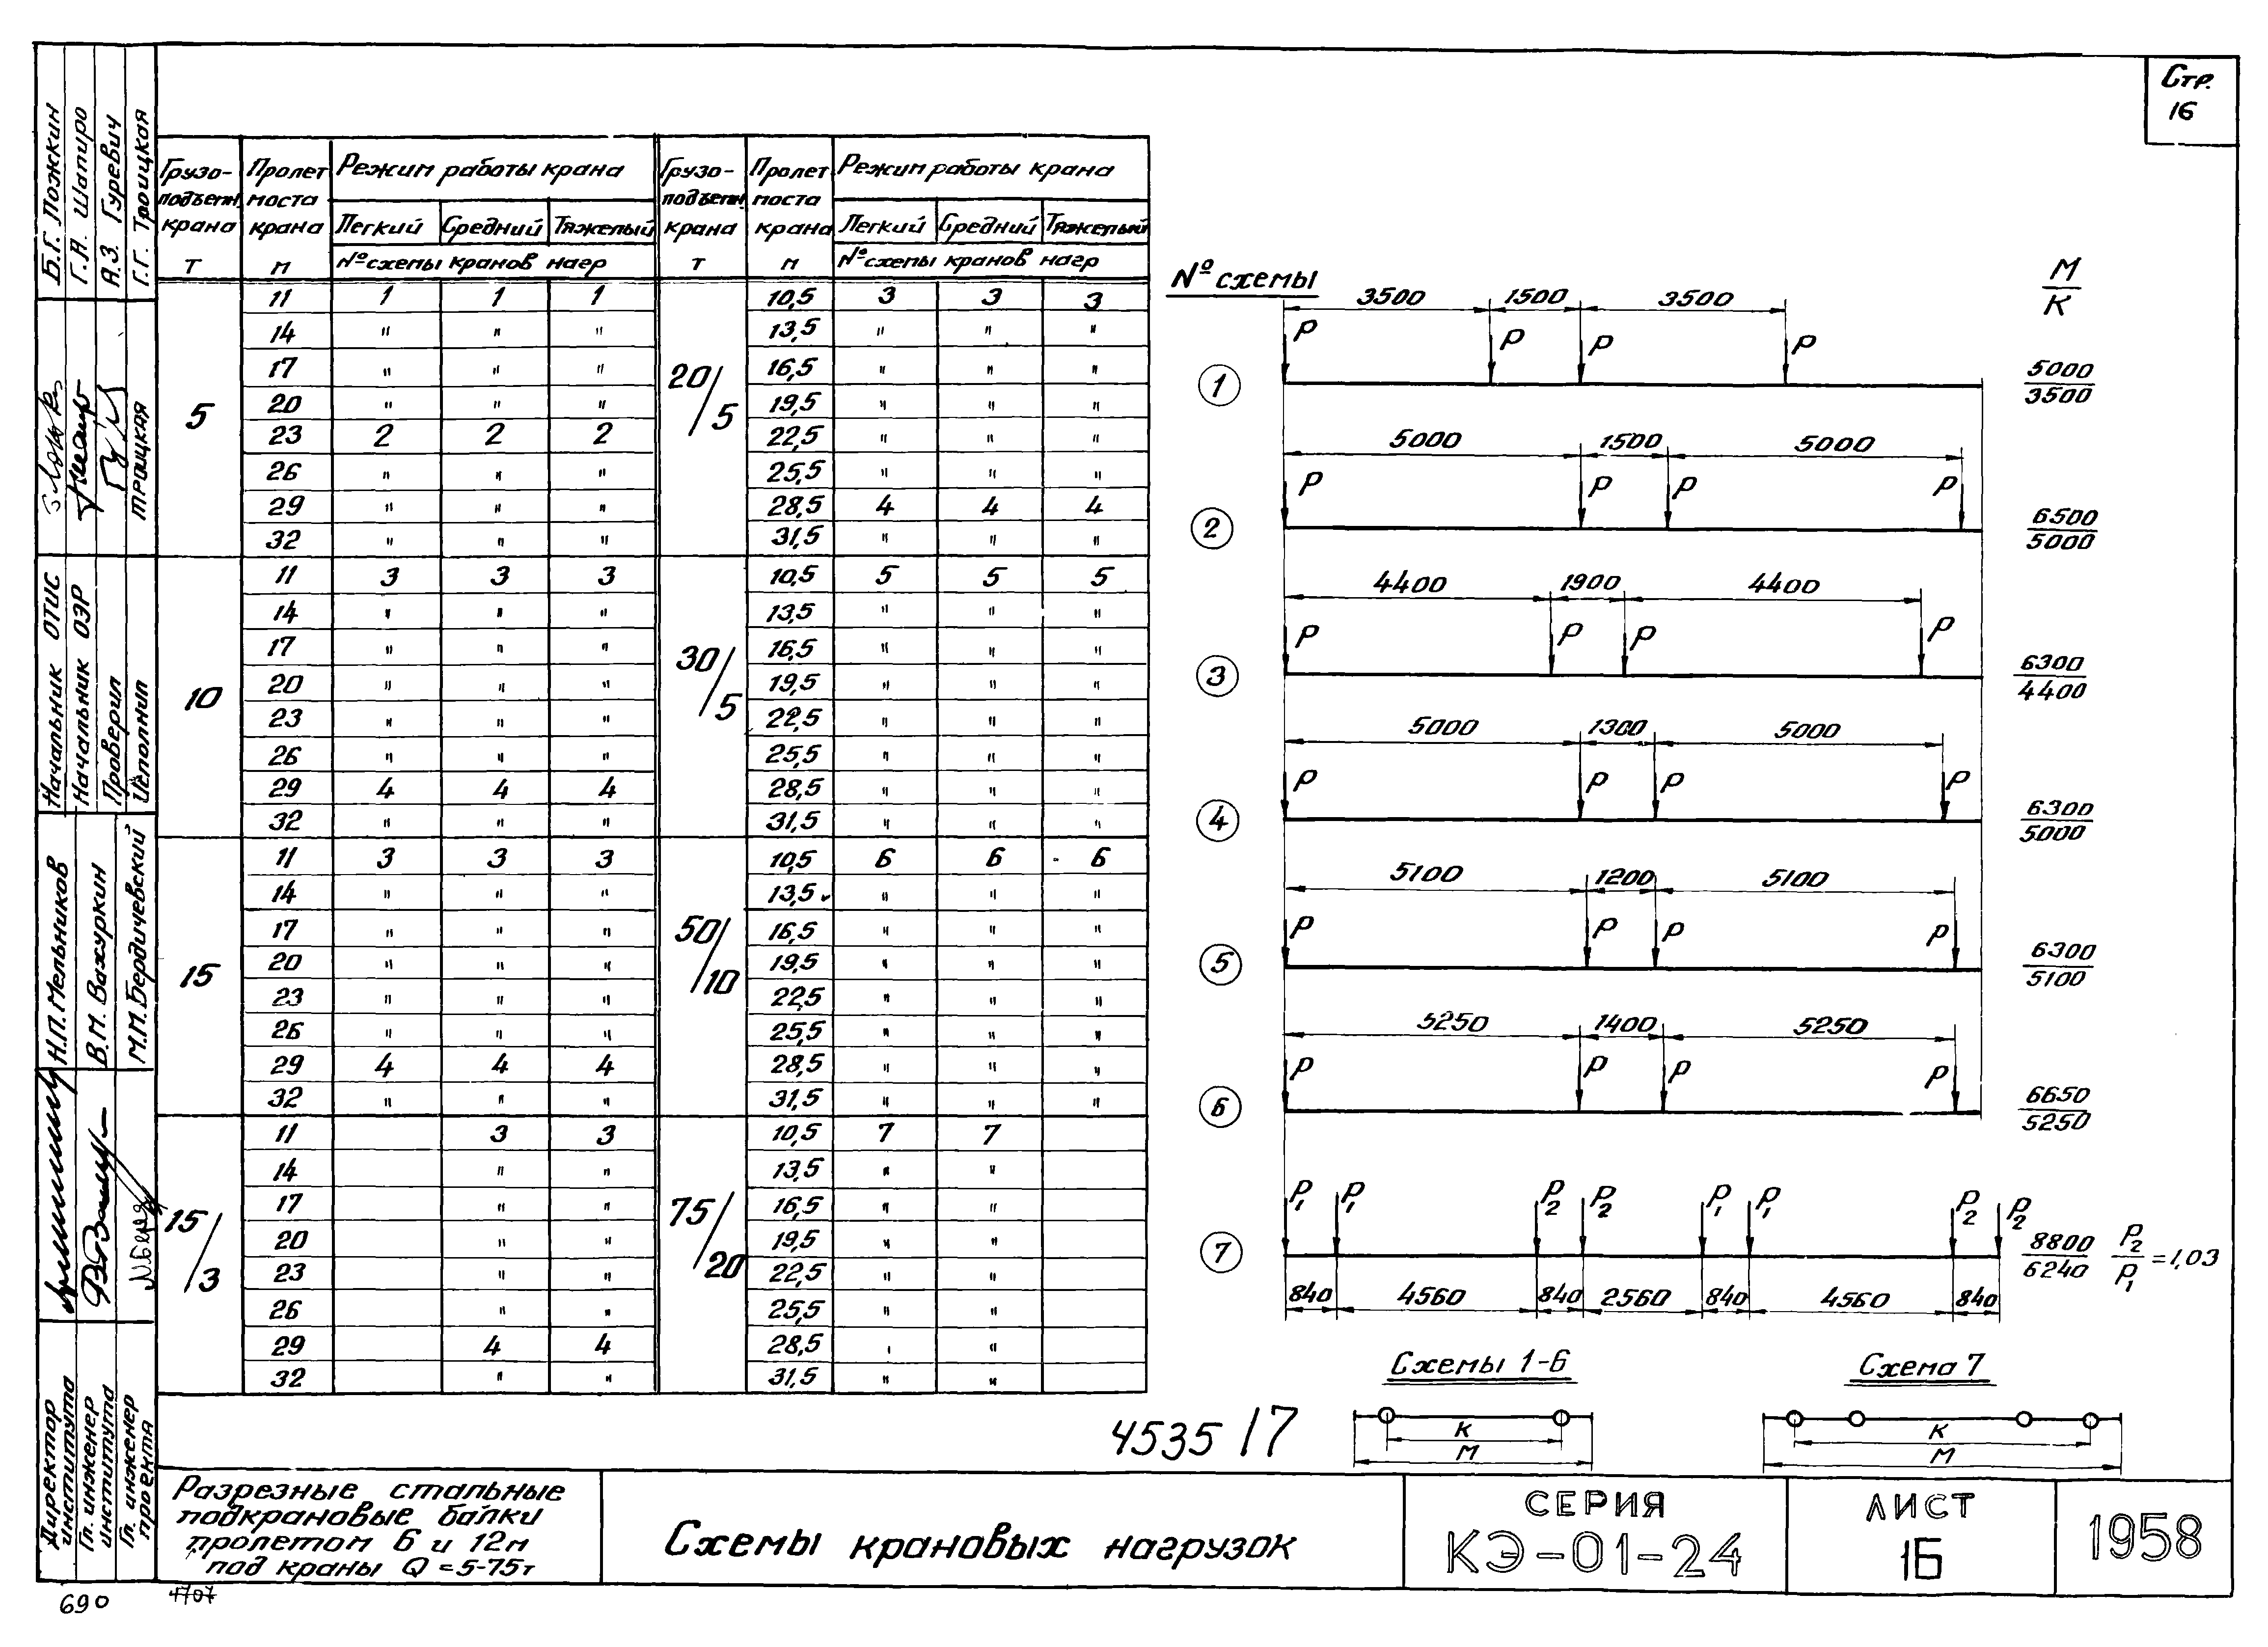 Стр.
16
Грузо-подъемн. крана Т | Пролет моста крана м | Режим работы крана | Грузо-подъемн. крана Т | Пролет моста крана м | Режим работы крана
Легкий | Средний | Тяжелый | Легкий | Средний | Тяжелый
№ схемы кранов нагр | № схемы кранов нагр
5 | 11 | 1 | 1 | 1 | 20/5 | 10,5 | 3 | 3 | 3
14 | " | " | " | 13,5 | " | " | "
17 | " | " | " | 16,5 | " | " | "
20 | " | " | " | 19,5 | " | " | "
23 | 2 | 2 | 2 | 22,5 | " | " | "
26 | " | " | " | 25,5 | " | " | "
29 | " | " | " | 28,5 | 4 | 4 | 4
32 | " | " | " | 31,5 | " | " | "
10 | 11 | 3 | 3 | 3 | 30/5 | 10,5 | 5 | 5 | 5
14 | " | " | " | 13,5 | " | " | "
17 | " | " | " | 16,5 | " | " | "
20 | " | " | " | 19,5 | " | " | "
23 | " | " | " | 22,5 | " | " | "
26 | " | " | " | 25,5 | " | " | "
29 | 4 | 4 | 4 | 28,5 | " | " | "
32 | " | " | " | 31,5 | " | " | "
15 | 11 | 3 | 3 | 3 | 50/10 | 10,5 | 6 | 6 | 6
14 | " | " | " | 13,5 | " | " | "
17 | " | " | " | 16,5 | " | " | "
20 | " | " | " | 19,5 | " | " | "
23 | " | " | " | 22,5 | " | " | "
26 | " | " | " | 25,5 | " | " | "
29 | 4 | 4 | 4 | 28,5 | " | " | "
32 | " | " | " | 31,5 | " | " | "
15/3 | 11 | 3 | 3 | 75/20 | 10,5 | 7 | 7
14 | " | " | 13,5 | " | "
17 | " | " | 16,5 | " | "
20 | " | " | 19,5 | " | "
23 | " | " | 22,5 | " | "
26 | " | " | 25,5 | " | "
29 | 4 | 4 | 28,5 | " | "
32 | " | " | 31,5 | " | "
№ схемы
М/К
3500 1500 3500
Р Р Р Р
1
5000/3500
5000 1500 5000
Р Р Р Р
2
6500/5000
4400 1900 4400
Р Р Р Р
3
6300/4400
5000 1300 5000
Р Р Р Р
4
6300/5000
5100 1200 5100
Р Р Р Р
5
6300/5100
5250 1400 5250
Р Р Р Р
6
6650/5250
Р1 Р1 Р2 Р2 Р1 Р1 Р2 Р2
7
8800/6240 Р2/Р1 = 1,03
840 4560 840 2560 840 4560 840
Схемы 1-6
К
М
Схема 7
К
М
4535/7
Разрезные стальные
подкрановые балки
пролетом 6 и 12м
под краны Q = 5-75т
Схемы крановых нагрузок
СЕРИЯ
КЭ-01-24
ЛИСТ
16
1958
690
4707
Начальник ОТИС
Б.Г. Ложкин
Начальник ОЭР
Г.А. Шапиро
Проверил
А.З. Гуревич
Исполнил
Троицкая
Г.Г. Троицкая
Директор института
Н.П. Мельников
Гл. инженер института
В.М. Вахуркин
Гл. инженер проекта
М.М. Бердичевский